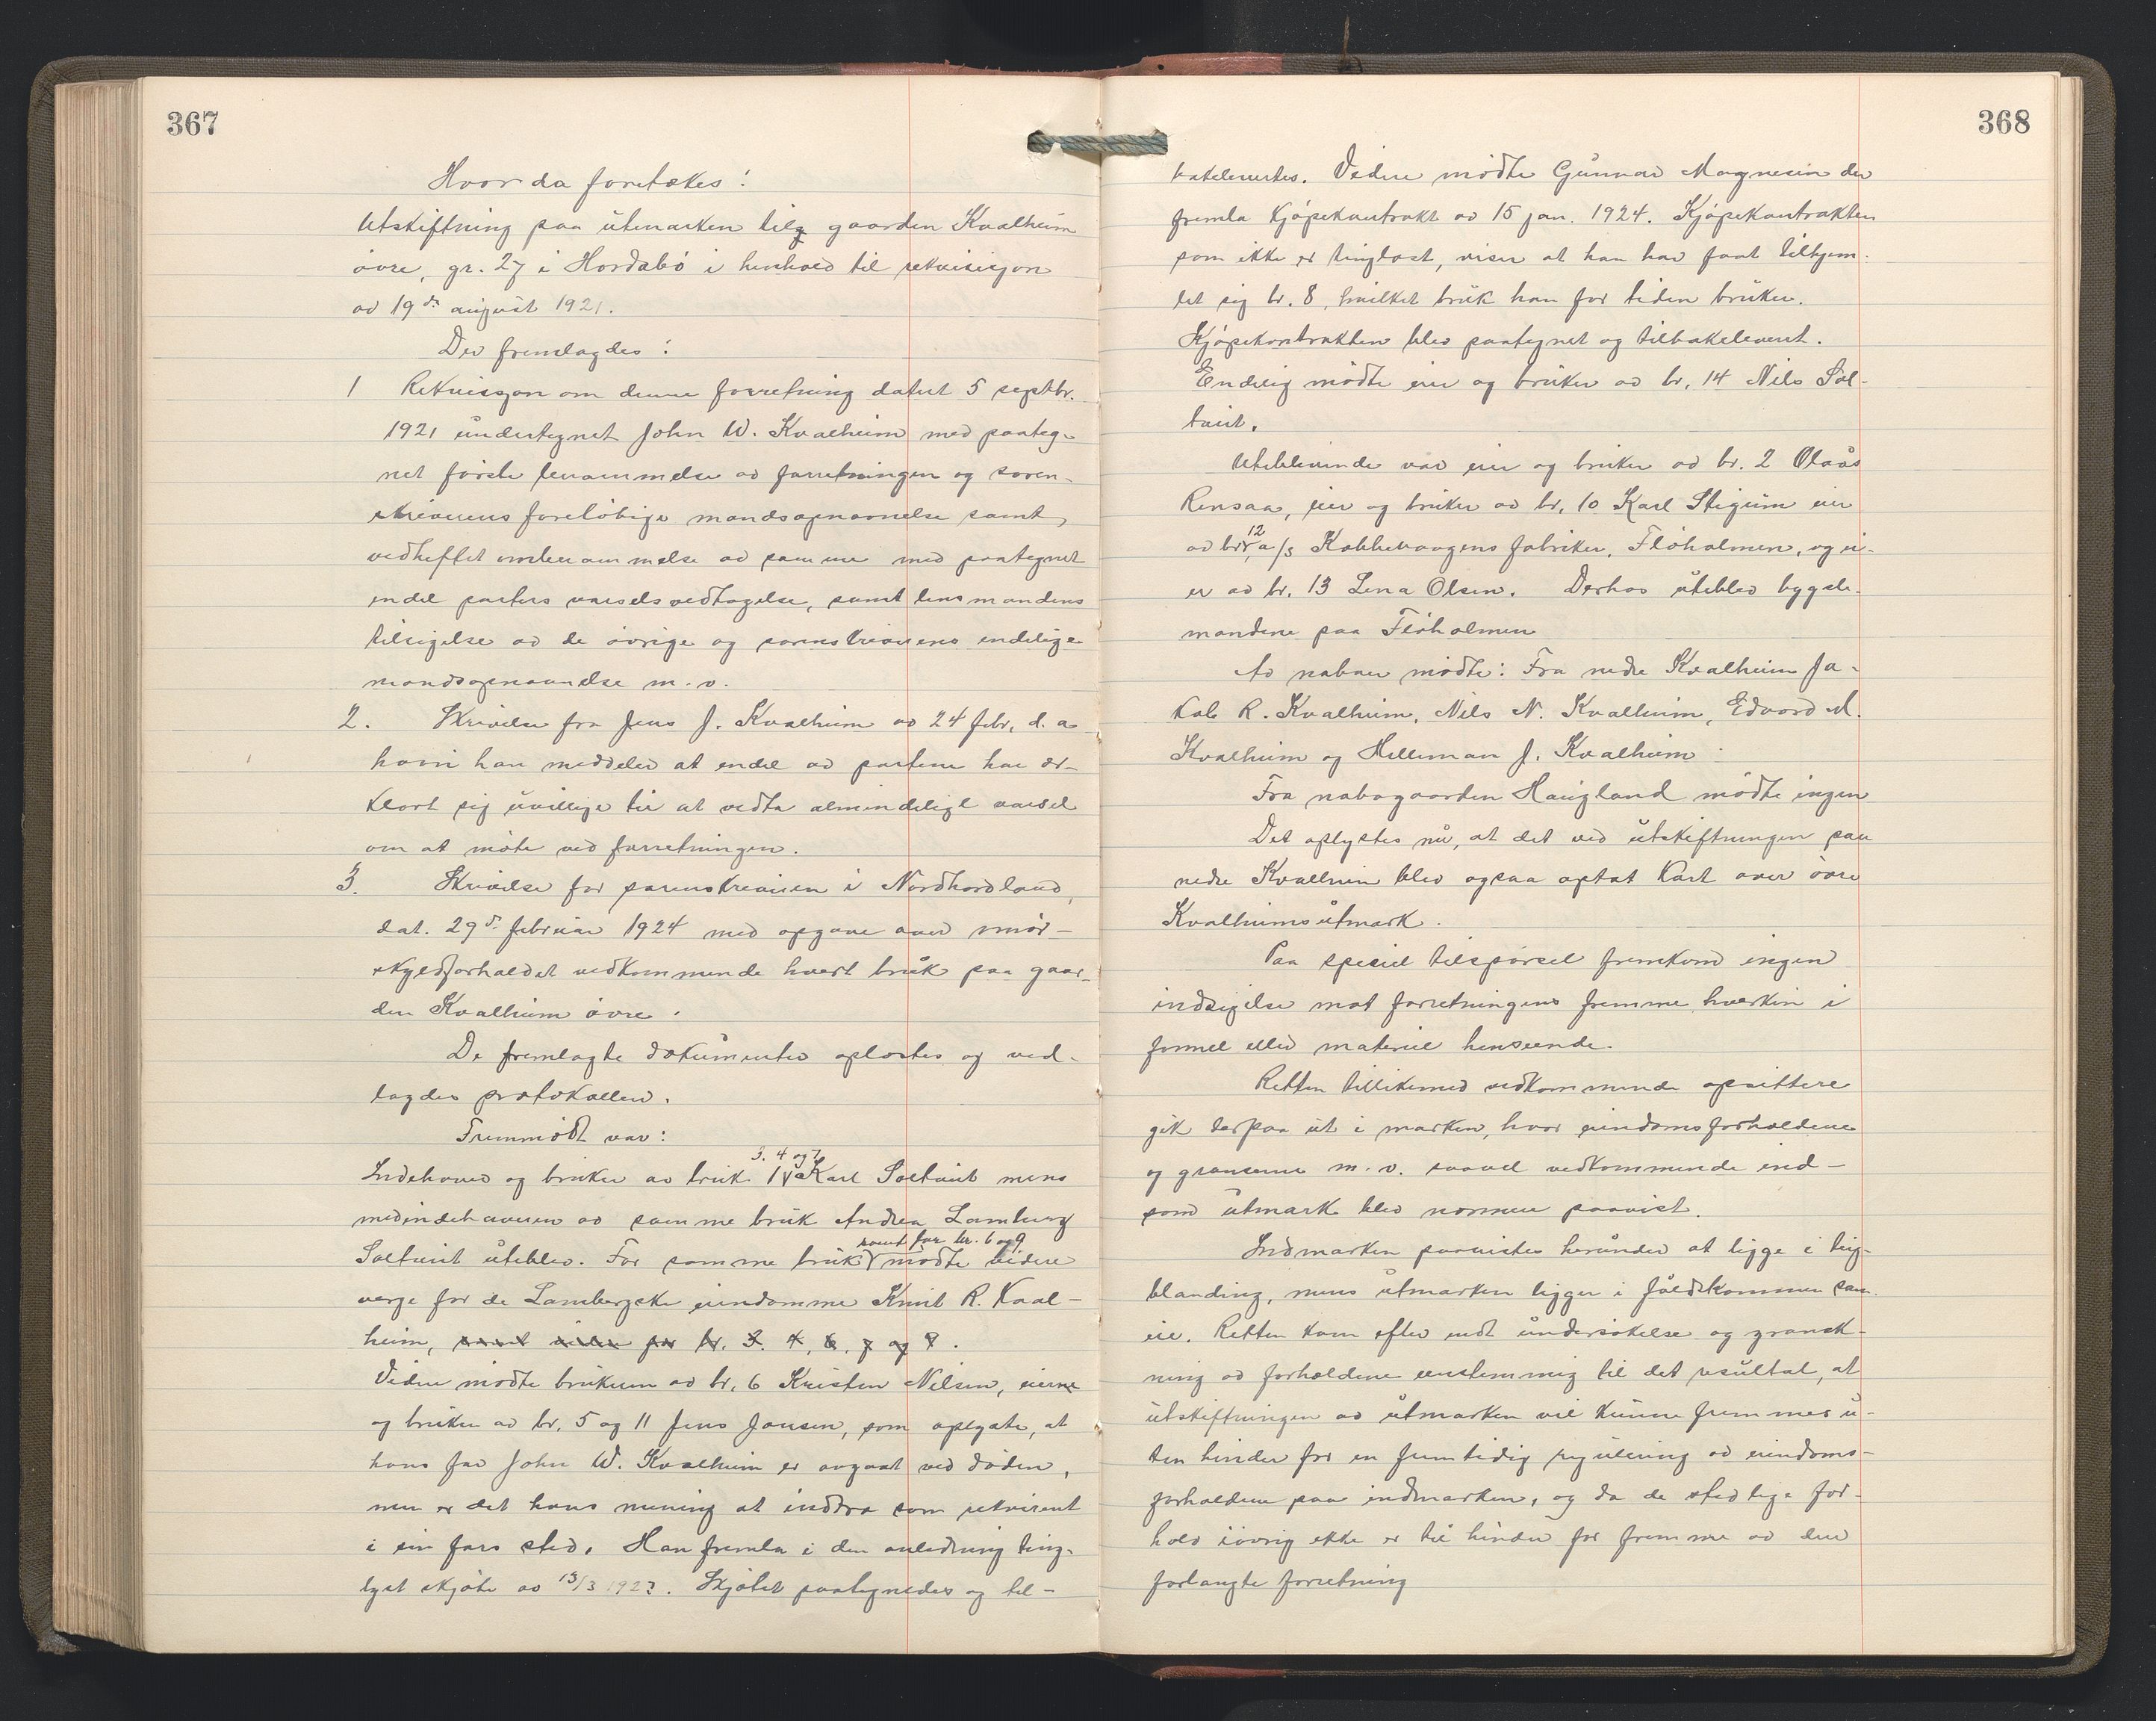 367
Hvor da foretokes:
Utskiftning paa utmarken tilg gaarden Kvalheim
øvre, gr. 27 i Hordabø i henhold til rekvisisjon
av 19de august 1921.
Der fremlagdes:
1 Rekvissjon om denne forretning datert 5 septbr.
1921 undertegnet John W. Kvalheim med paateg-
net første berammelse av forretningen og soren-
skriverens foreløbige mandsopnævnelse samt
vedheftet omberammelse av samme med paategnet
endel parters varselsvedtagelse, samt lensmandens
tilsigelse av de øvrige og sorenskriverens endelige
mandsopnævnelse m.v.
2. Skrivelse fra Jens J. Kvalheim av 24 febr. d.a.
hvori han meddeler at endel av partene har er-
klært sig uvillige til at vedta almindeligt varsel
om at møte ved forretningen.
3. Skrivelse for sorenskriveren i Nordhordland,
dat. 29de februar 1924 med opgave over smør-
skyldforholdet vedkommende hvert bruk paa gaar-
den Kvalheim øvre.
De fremlagte dokumenter oplæstes og ved-
lagdes protokollen.
Fremmødt var:
3. 4 og 7
Indehaver og bruker av bruk 1 Karl Soltvit mens
medindehaveren av samme bruk Andrea Lamberg
samt for br. 6 og 9
Soltvit uteblev. For samme bruk møtte videre
verge for de Lambergske eiendomme Knut R. Kval-
heim, samt videre for br. 3. 4, 6, 7 og 9.
Videre møtte brukeren av br. 6 Kristen Nilsen, eierne
og bruker av br. 5 og 11 Jens Jansen, som oplyste, at
hans far John W. Kvalheim er avgaat ved døden,
men er det hans mening at inddra som rekvirent
i sin fars sted. Han fremla i den anledning ting-
lyst skjøte av 13/3 1923. Skjøtet paategnedes og til-
368
bakelevertes. Videre mødte Gunnar Magnesen der
fremla kjøpekontrakt av 15 jan. 1924. Kjøpekontrakten
som ikke er tinglæst, viser at han har faat tilhjem-
let sig br. 8, hvilket bruk han for tiden bruker.
Kjøpekontrakten blev paategnet og tilbakelevert.
Endelig mødte eier og bruker av br. 14 Nils Sol-
tvit.
Uteblivende var eier og bruker av br. 2 Olaus
Rensaa, eier og bruker av br. 10 Karl Stigum eier
12
av br, a/s Kobbevaagens fabriker, Fløholmen, og ei-
er av br. 13 Lena Olsen. Derhos uteblev bygsle-
mændene paa Fløholmen
Av naboer mødte: Fra nedre Kvalheim Ja-
kob R. Kvalheim, Nils N. Kvalheim, Edvard M.
Kvalheim og Helleman J. Kvalheim
Fra nabogaarden Haugland mødte ingen
Det oplystes nu, at det ved utskiftningen paa
nedre Kvalheim blev ogsaa optat kart over øvre
Kvalheims utmark.
Paa spesiel tilspørsel fremkom ingen
indsigelse mot forretningens fremme hverken i
formel eller materiel henseende.
Retten tillikemed vedkommende opsittere
gik derpaa ut i marken, hvor eiendomsforholdene
og grænserne m.v. saavel vedkommende ind-
som utmark blev nærmere paavist.
Indmarken paavistes herunder at ligge i teig-
blanding, mens utmarken ligger i fuldkommen sam-
eie. Retten kom efter endt undersøkelse og gransk-
ning av forholdene enstemmig til det resultat, at
utskiftningen av utmarken vil kunne fremmes u-
ten hinder for en fremtidig regulering av eiendoms-
forholdene paa indmarken, og da de stedlige for-
hold iøvrig ikke er til hinder for fremme av den
forlangte forretning